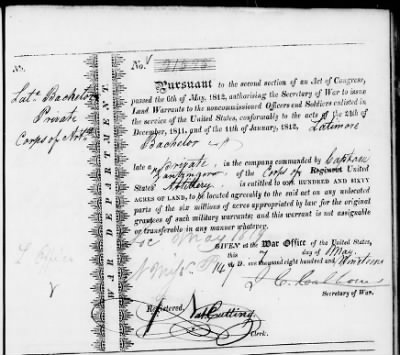 No.
Lat.ⁿ Bachelor
Private
Corps of Art.
WAR DEPARTMENT.
No.
Pursuant to the second section of an Act of Congress,
passed the 6th of May, 1812, authorising the Secretary of War to issue
Land Warrants to the noncommissioned Officers and Soldiers enlisted in
the service of the United States, conformably to the acts of the 24th of
December, 1811, and of the 11th of January, 1812, Latimore
Bachelor
late a Private in the company commanded by Captain
of the Corps of Regiment United
States Artillery, is entitled to ONE HUNDRED AND SIXTY
ACRES OF LAND, to be located agreeably to the said act on any unlocated
parts of the six millions of acres appropriated by law for the original
grantees of such military warrants; and this warrant is not assignable
or transferable in any manner whatever.
May 1819
GIVEN at the War Office of the United States,
this 7 day of May
A. D. one thousand eight hundred and Nineteen
J. C. Calhoun
Secretary of War.
Registered, Nat Cutting
Clerk.